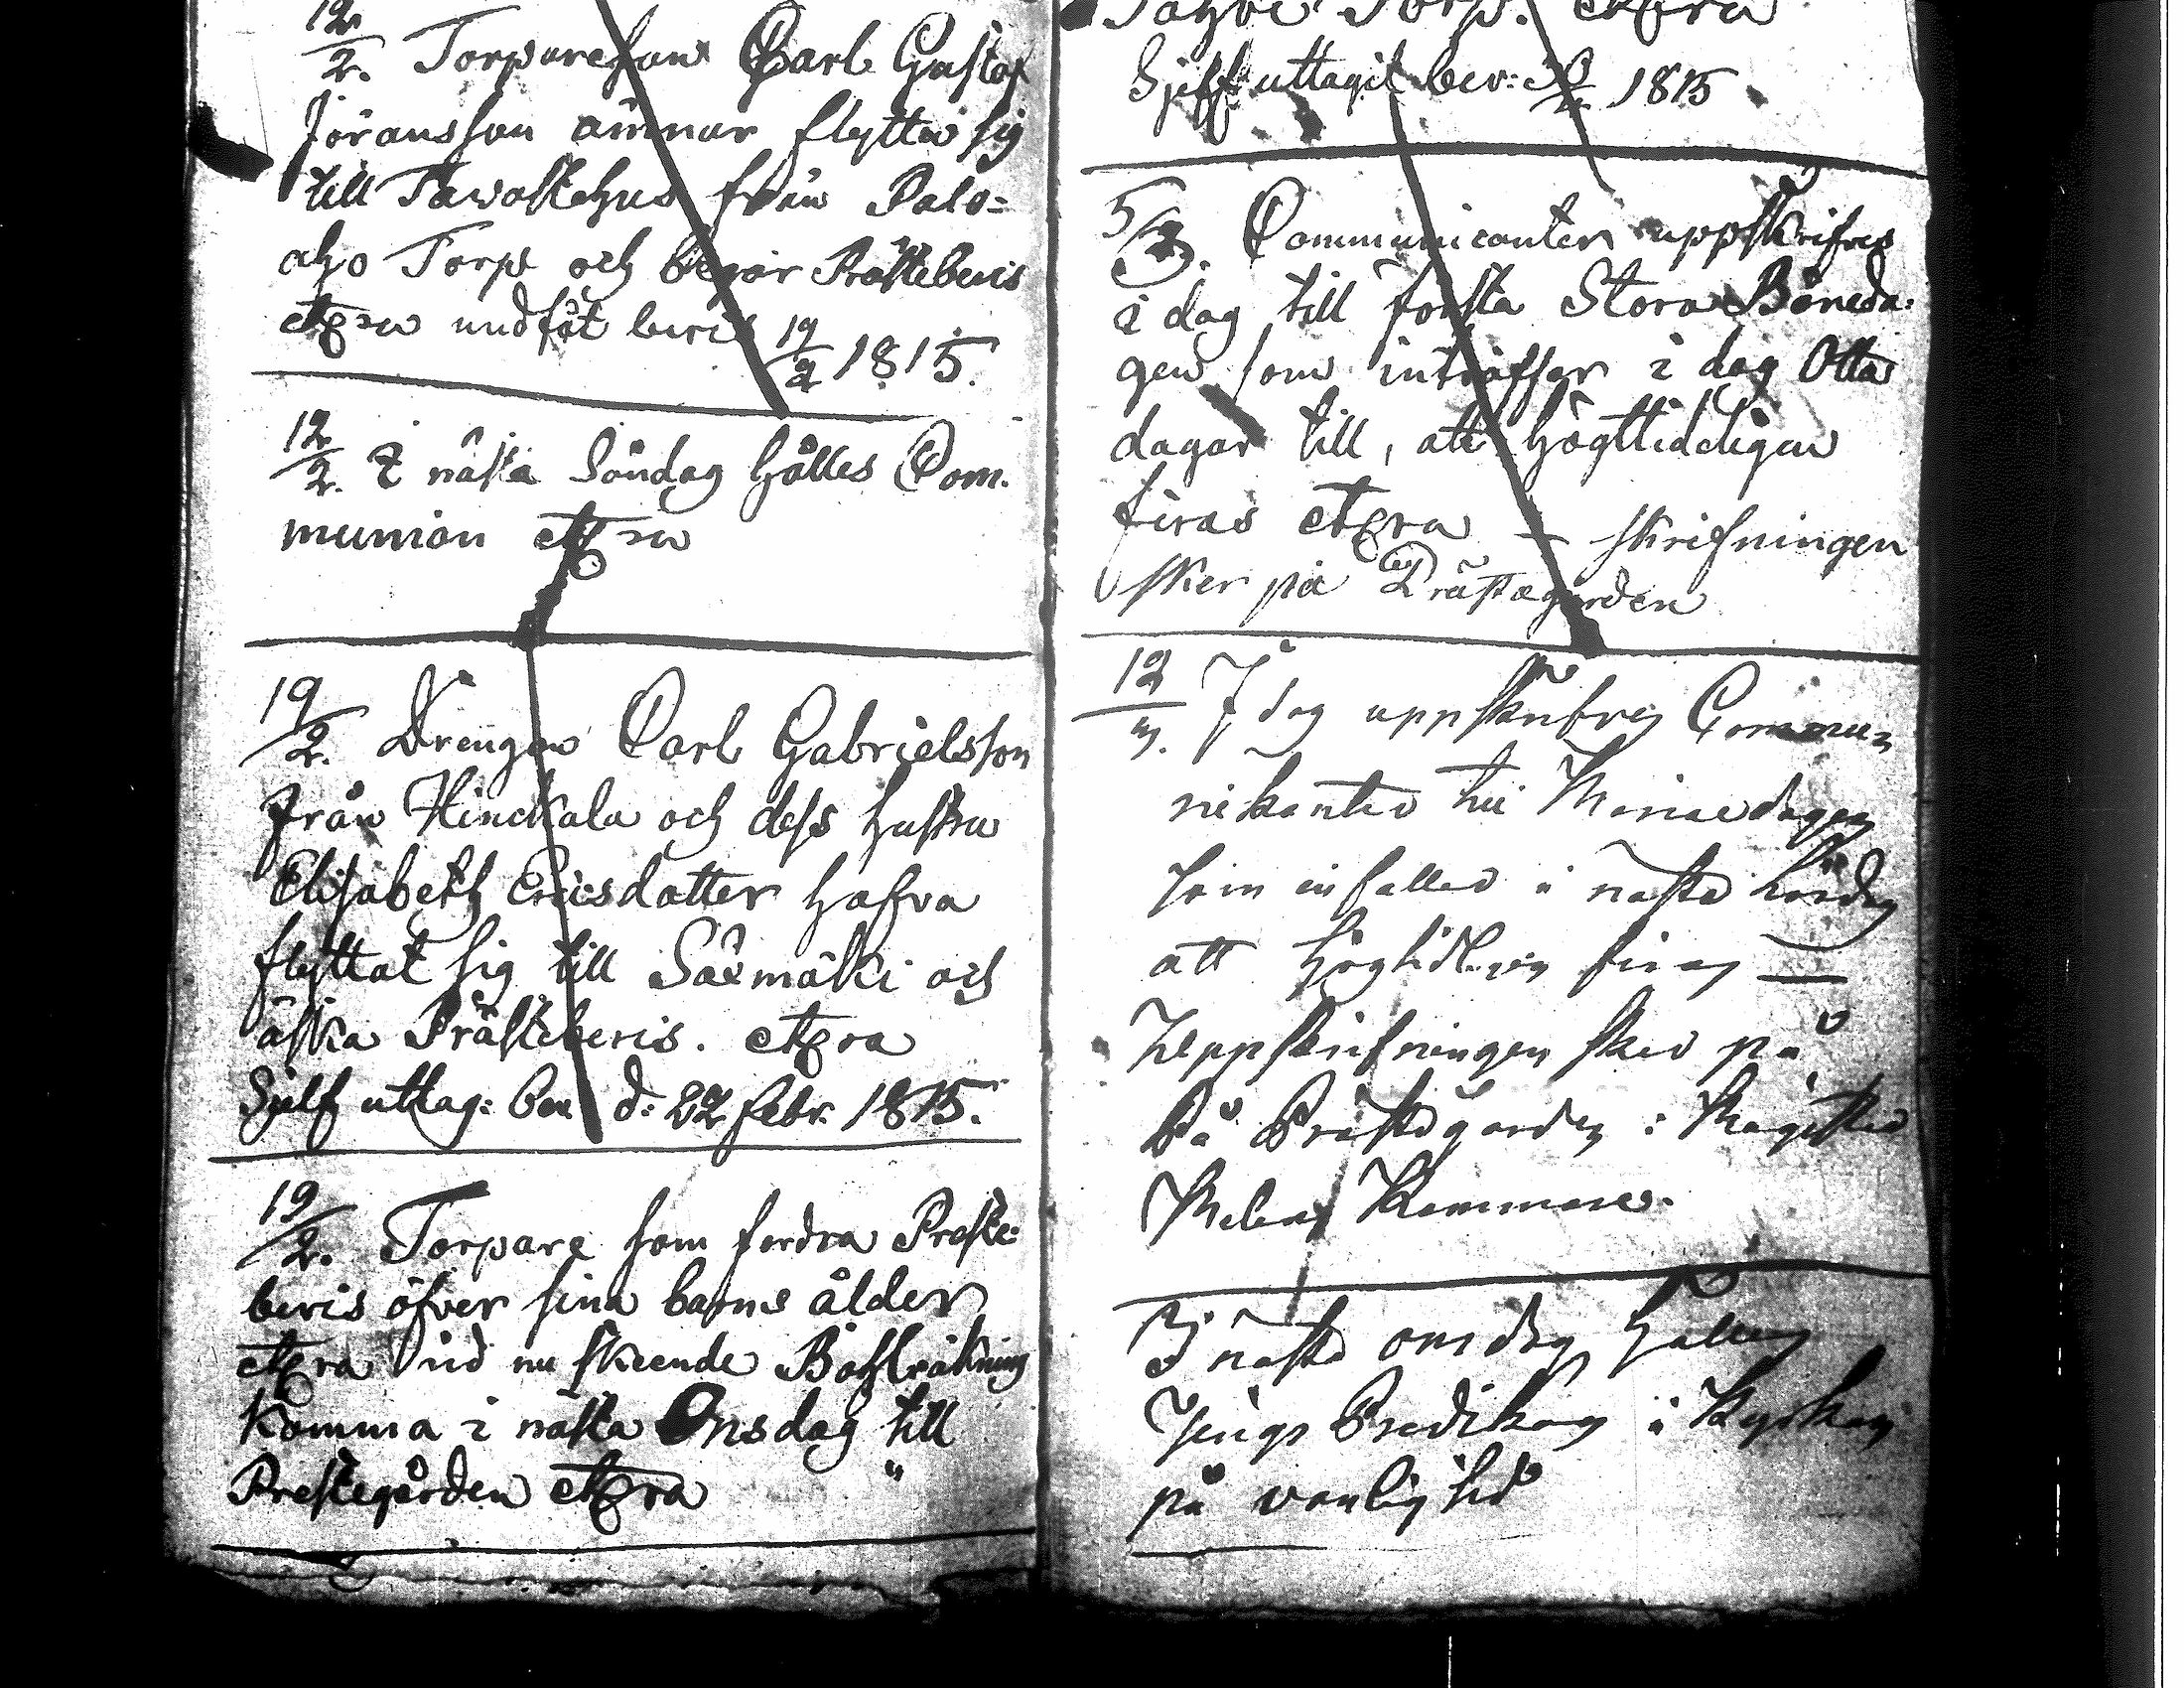 12/2. Torparesonen Carl Gustaf
Jöransson ämnar flytta sig
till Tawastehus från Palo-
aho Torp och begär Prästebevis
etcra undfåt bevis 19/2 1815.
12/2. I nästa Söndag hålles Com-
munion etcra
19/2. Drengen Carl Gabrielsson
från Hinckala och dess hustru
Elisabeth Ericsdatter hafva
flyttat sig till Säxmäki och
äska Prästebevis. etcra
Sjelf uttag: bev d: 22 Febr. 1815.
19/2. Torpare som fordra Preste-
bevis öfver sina barns ålder
etcra vid nu skeende
komma i nästa Onsdag till
Prestegården etcra "
Torp. etcra
Sjelf uttagit bev: 1815
5/3. Communicanter uppskrifves
i dag till första Stora Böneda-
gen som inträffar i dag Otta
dagar till, att högtideligen
firas etcra — skrifningen
sker på Prästegården
12/3. I dag uppskrifves Commu-
nikanter till Mariaedagen
som infaller i nästa Söndag
att högtidligen firas —
Uppskrifningen sker på
På Prästegården i Magister
Kammare.
I nästa onsdag hålles
Predikan i Kyrkan
på vanlig tid